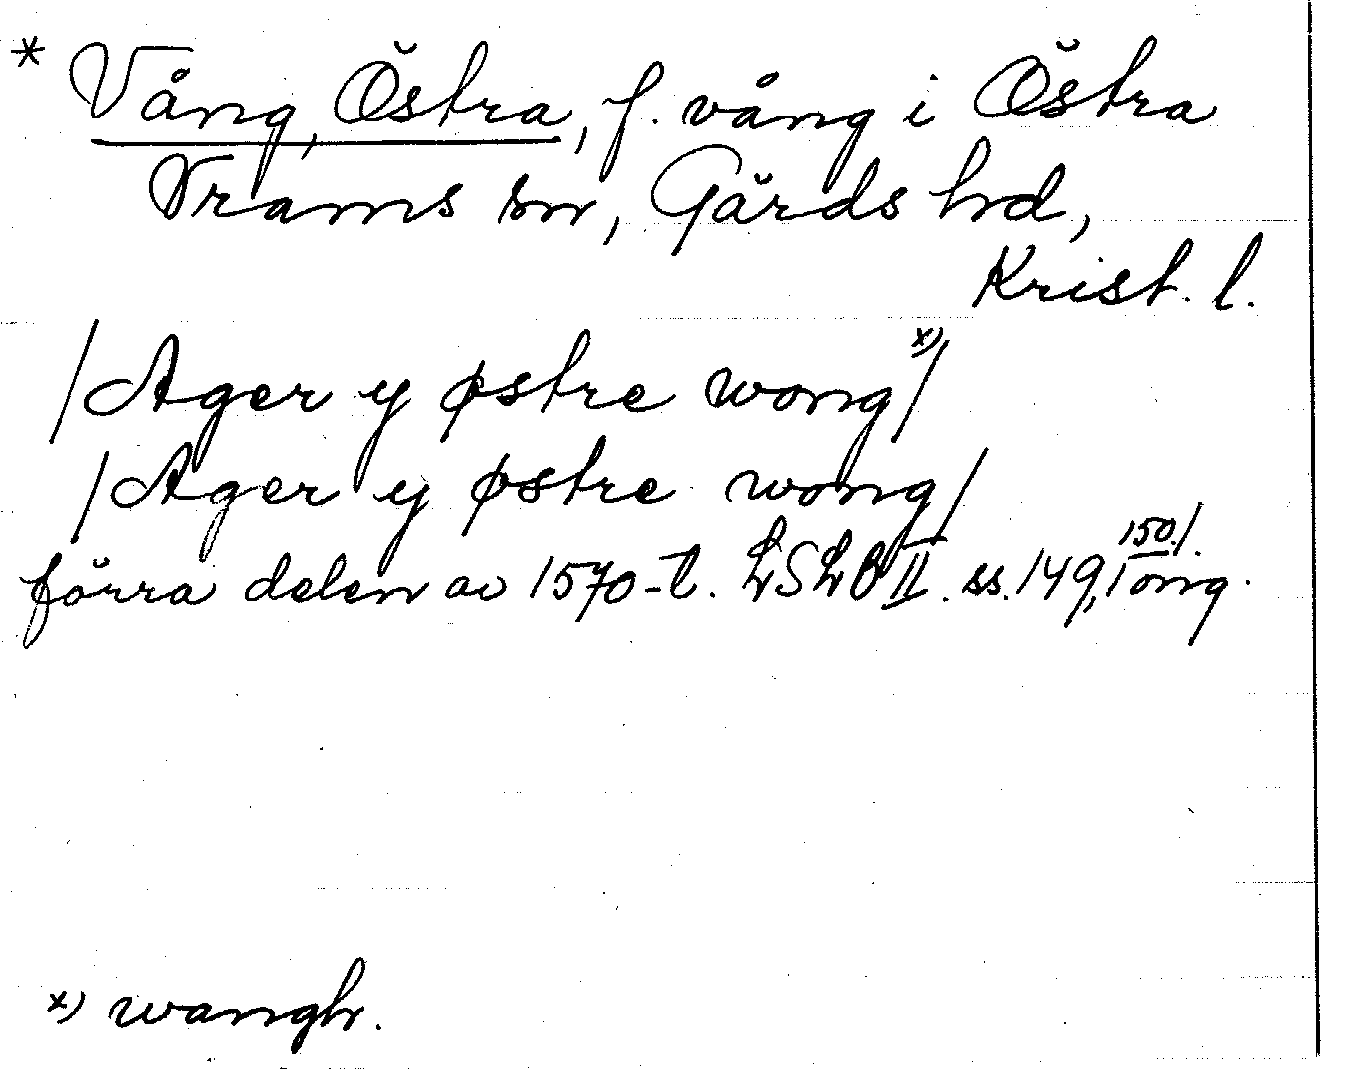 * Vång, Östra, f. vång i Östra
Vrams sn, Gärds hd,
Krist. l.
/Ager y østre wong x)/
/Ager y østre wong/
förra delen av 1570-t. LSLB II. ss. 149, 150./.
x) wangh.